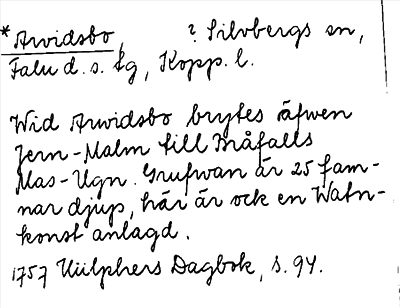 * Arvidsbo, ? Silvbergs sn,
Falu d. s. fg, Kopp. l.
Wid Arwidsbo brytes äfwen
Jern-Malm till Bråfalls
Mas-Ugn. Grufwan är 25 fam-
nar djup, här är ock en Watn-
konst anlagd.
1757 Hülphers Dagbok, s. 94.